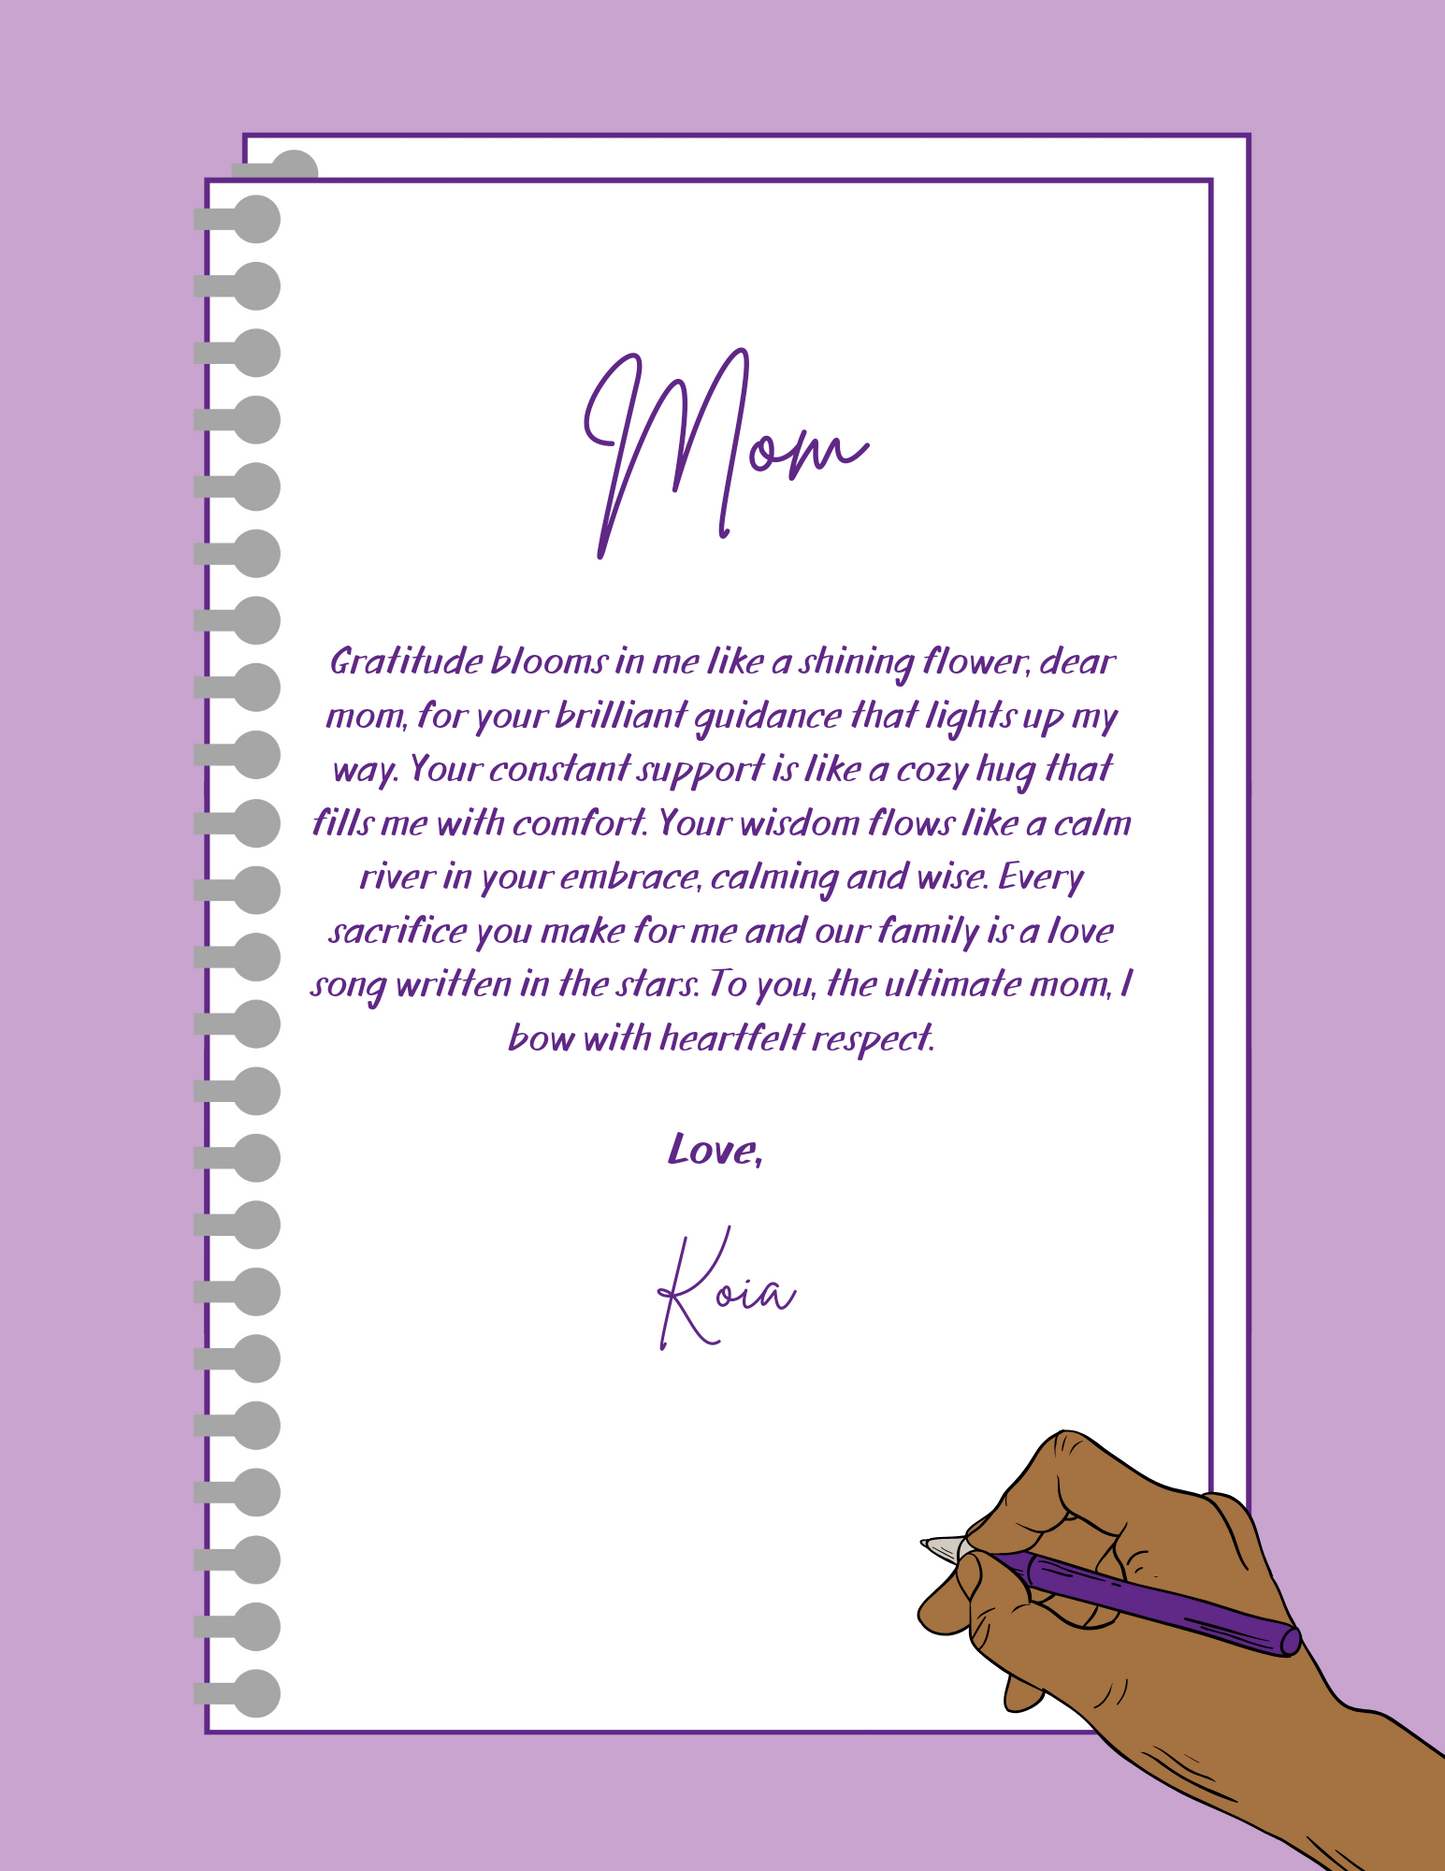 Mom
Gratitude blooms in me like a shining flower, dear
mom, for your brilliant guidance that lights up my
way. Your constant support is like a cozy hug that
fills me with comfort. Your wisdom flows like a calm
river in your embrace, calming and wise. Every
sacrifice you make for me and our family is a love
song written in the stars. To you, the ultimate mom, I
bow with heartfelt respect.
Love,
Koia